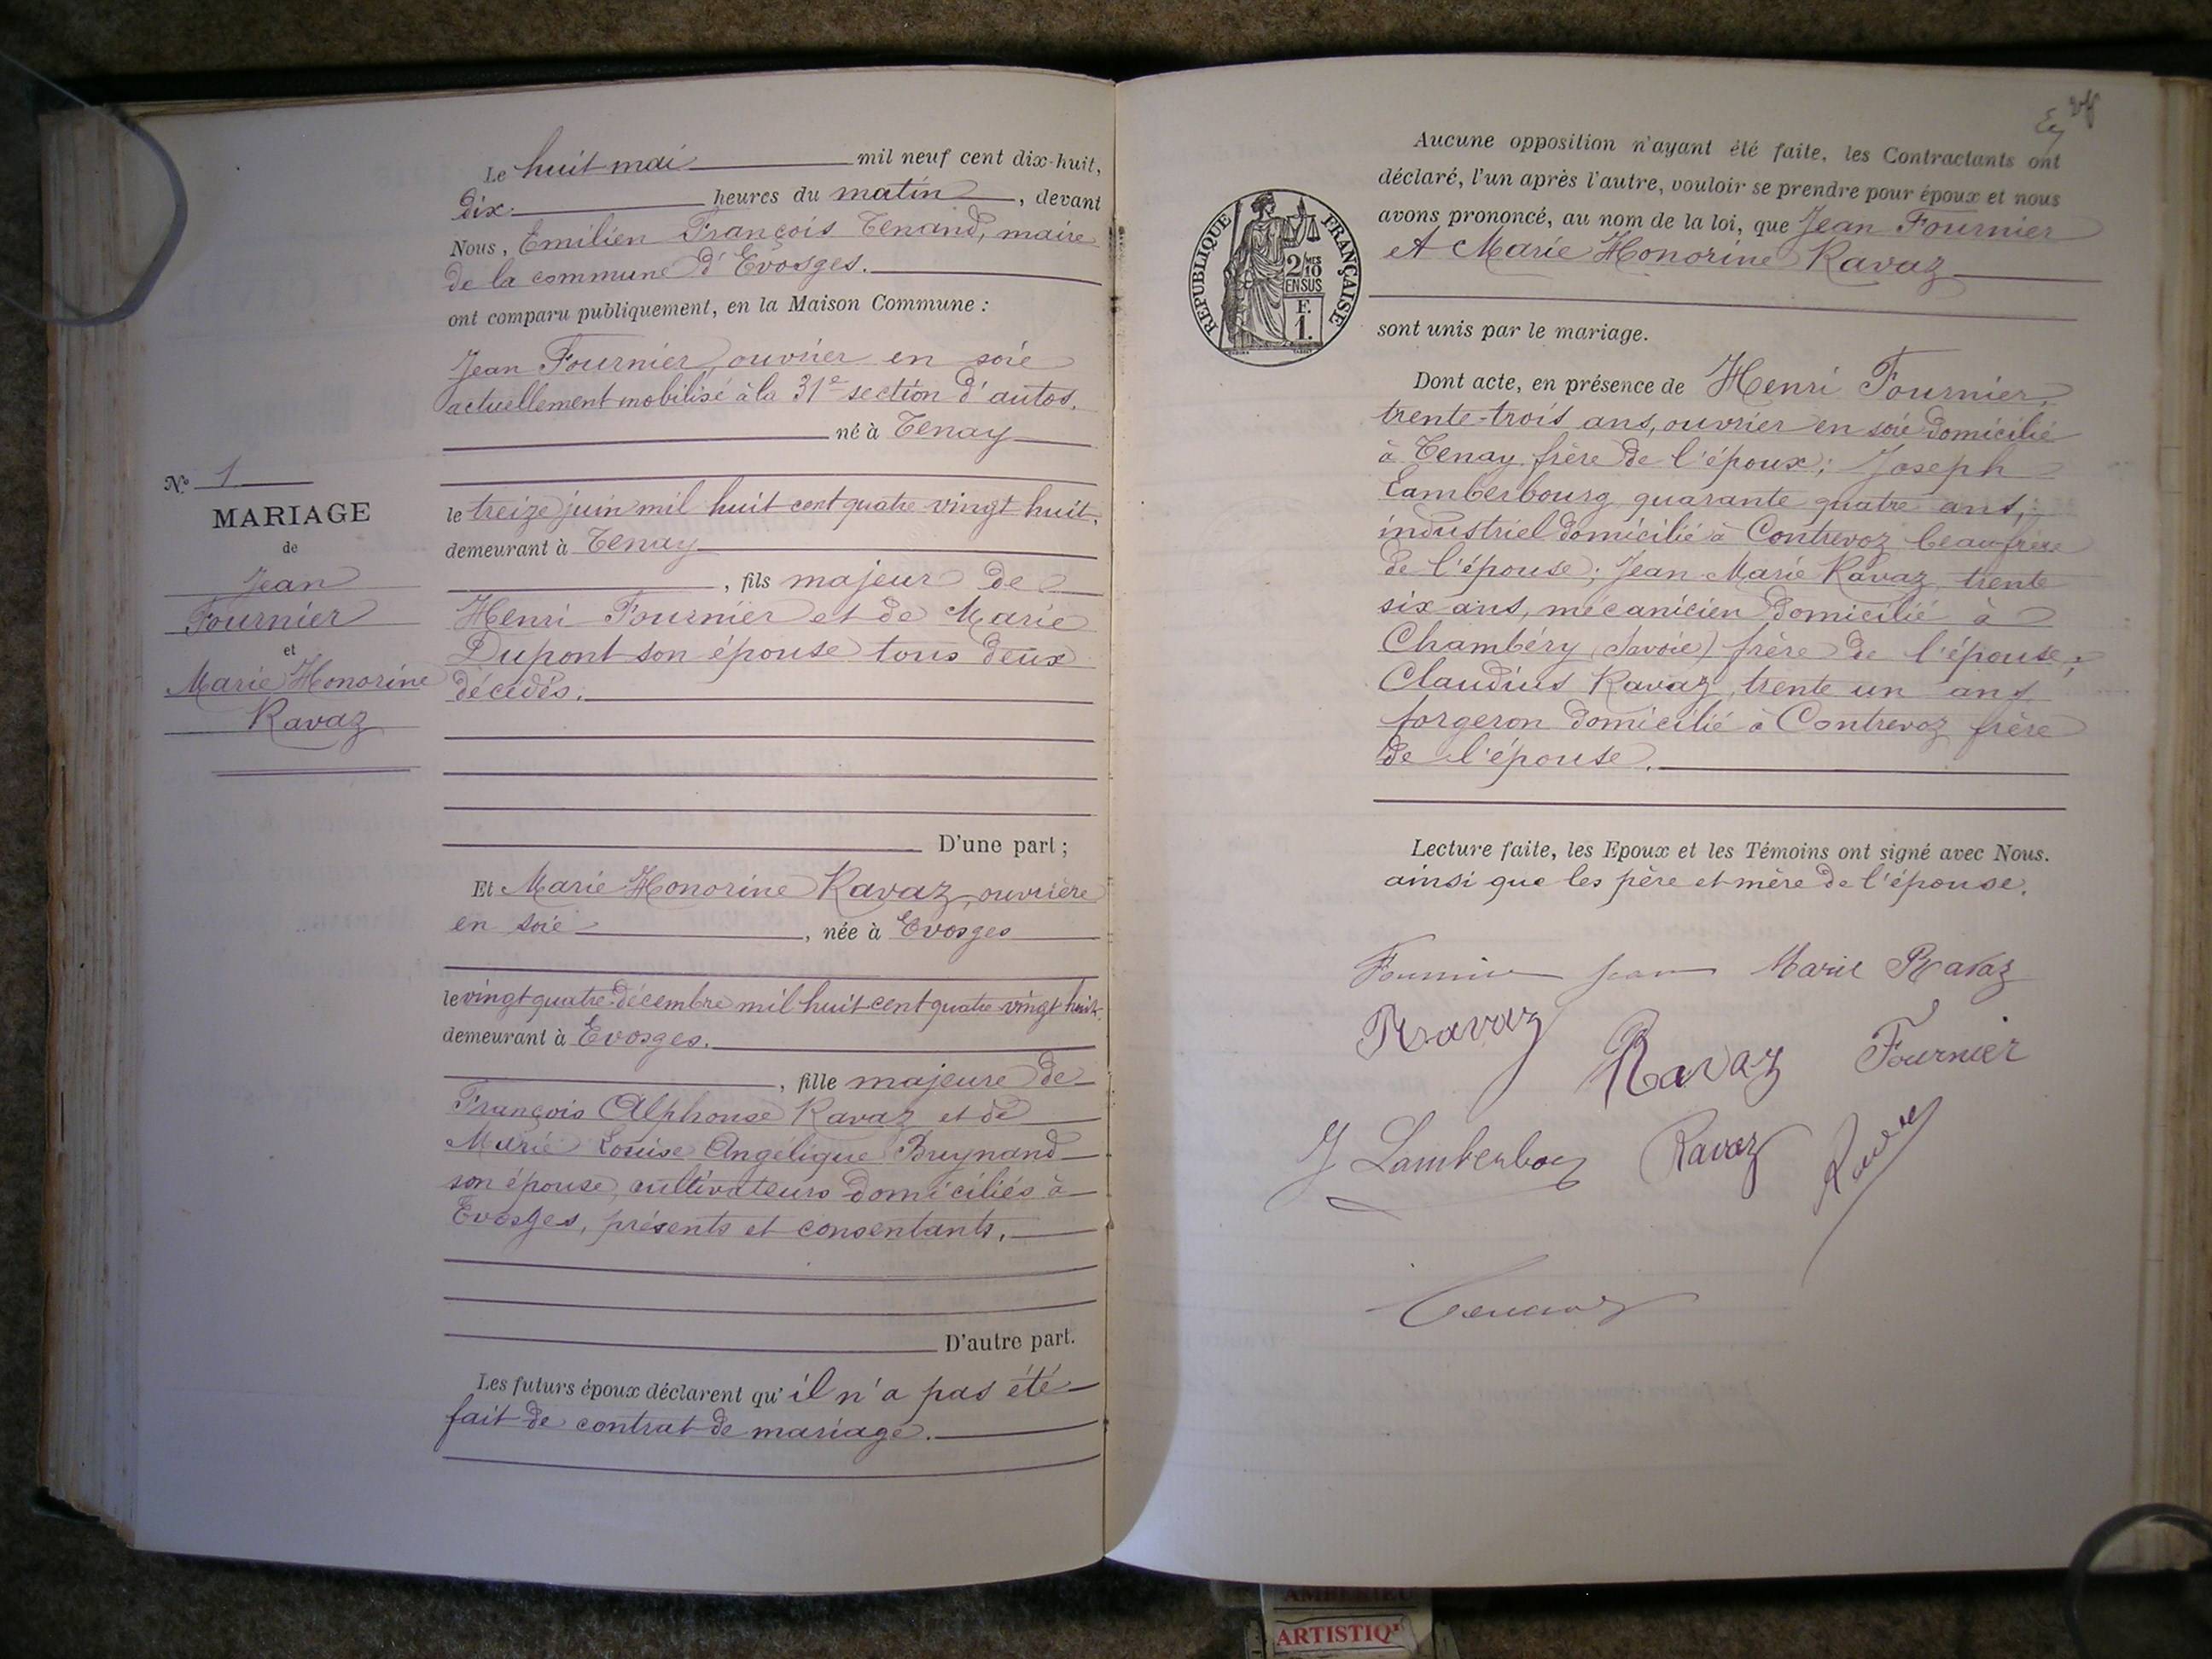 Le huit mai mil neuf cent dix-huit,
dix heures du matin, devant
Nous, Emilien François Tenand, maire
de la commune d'Evosges.
ont comparu publiquement, en la Maison Commune :
Jean Fournier, ouvrier en soie
actuellement mobilisé à la 31e section d'autos.
né à Tenay
le treize juin mil huit cent quatre vingt huit,
demeurant à Tenay
, fils majeur de
Henri Fournier et de Marie
Dupont son épouse tous deux
décédés.
D'une part ;
Et Marie Honorine Ravaz, ouvrière
en soie, née à Evosges
le vingt quatre décembre mil huit cent quatre vingt huit.
demeurant à Evosges.
, fille majeure de
François Alphonse Ravaz et de
Marie Louise Angélique Buynand
son épouse, cultivateurs domiciliés à
Evosges, présents et consentants.
D'autre part.
Les futurs époux déclarent qu'il n'a pas été
fait de contrat de mariage.
N° 1
MARIAGE
de
Jean
Fournier
et
Marie Honorine
Ravaz
Aucune opposition n'ayant été faite, les Contractants ont
déclaré, l'un après l'autre, vouloir se prendre pour époux et nous
avons prononcé, au nom de la loi, que Jean Fournier
et Marie Honorine Ravaz
sont unis par le mariage.
REPUBLIQUE FRANÇAISE
2/10MES
EN SUS
F.
1.
Dont acte, en présence de Henri Fournier,
trente-trois ans, ouvrier en soie domicilié
à Tenay frère de l'époux ; Joseph
Lamberbourg quarante quatre ans,
industriel domicilié à Contrevoz beau-frère
de l'épouse ; Jean Marie Ravaz, trente
six ans, mécanicien domicilié à
Chambéry (Savoie) frère de l'épouse ;
Claudius Ravaz, trente un ans
forgeron domicilié à Contrevoz frère
de l'épouse.
Lecture faite, les Epoux et les Témoins ont signé avec Nous.
ainsi que les père et mère de l'épouse.
Fournier Jean Marie Ravaz
Ravaz Ravaz Fournier
J Lamberbourg Ravaz
Tenand
AMBERIEU
ARTISTIQ